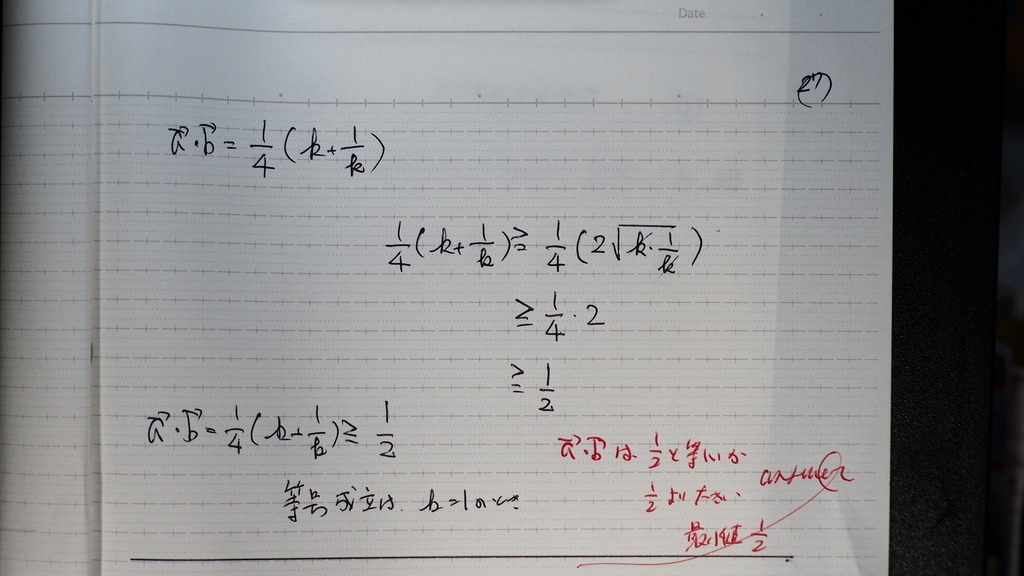 Date
(27)
a⃗·b⃗ = 1/4 (k + 1/k)
1/4 (k + 1/k) ≧ 1/4 (2√(k·1/k))
≧ 1/4 · 2
≧ 1/2
a⃗·b⃗ = 1/4 (k + 1/k) ≧ 1/2
等号成立は、k=1のとき
a⃗·b⃗ は 1/2 と等しいか
1/2 より大きい
最小値 1/2
answer